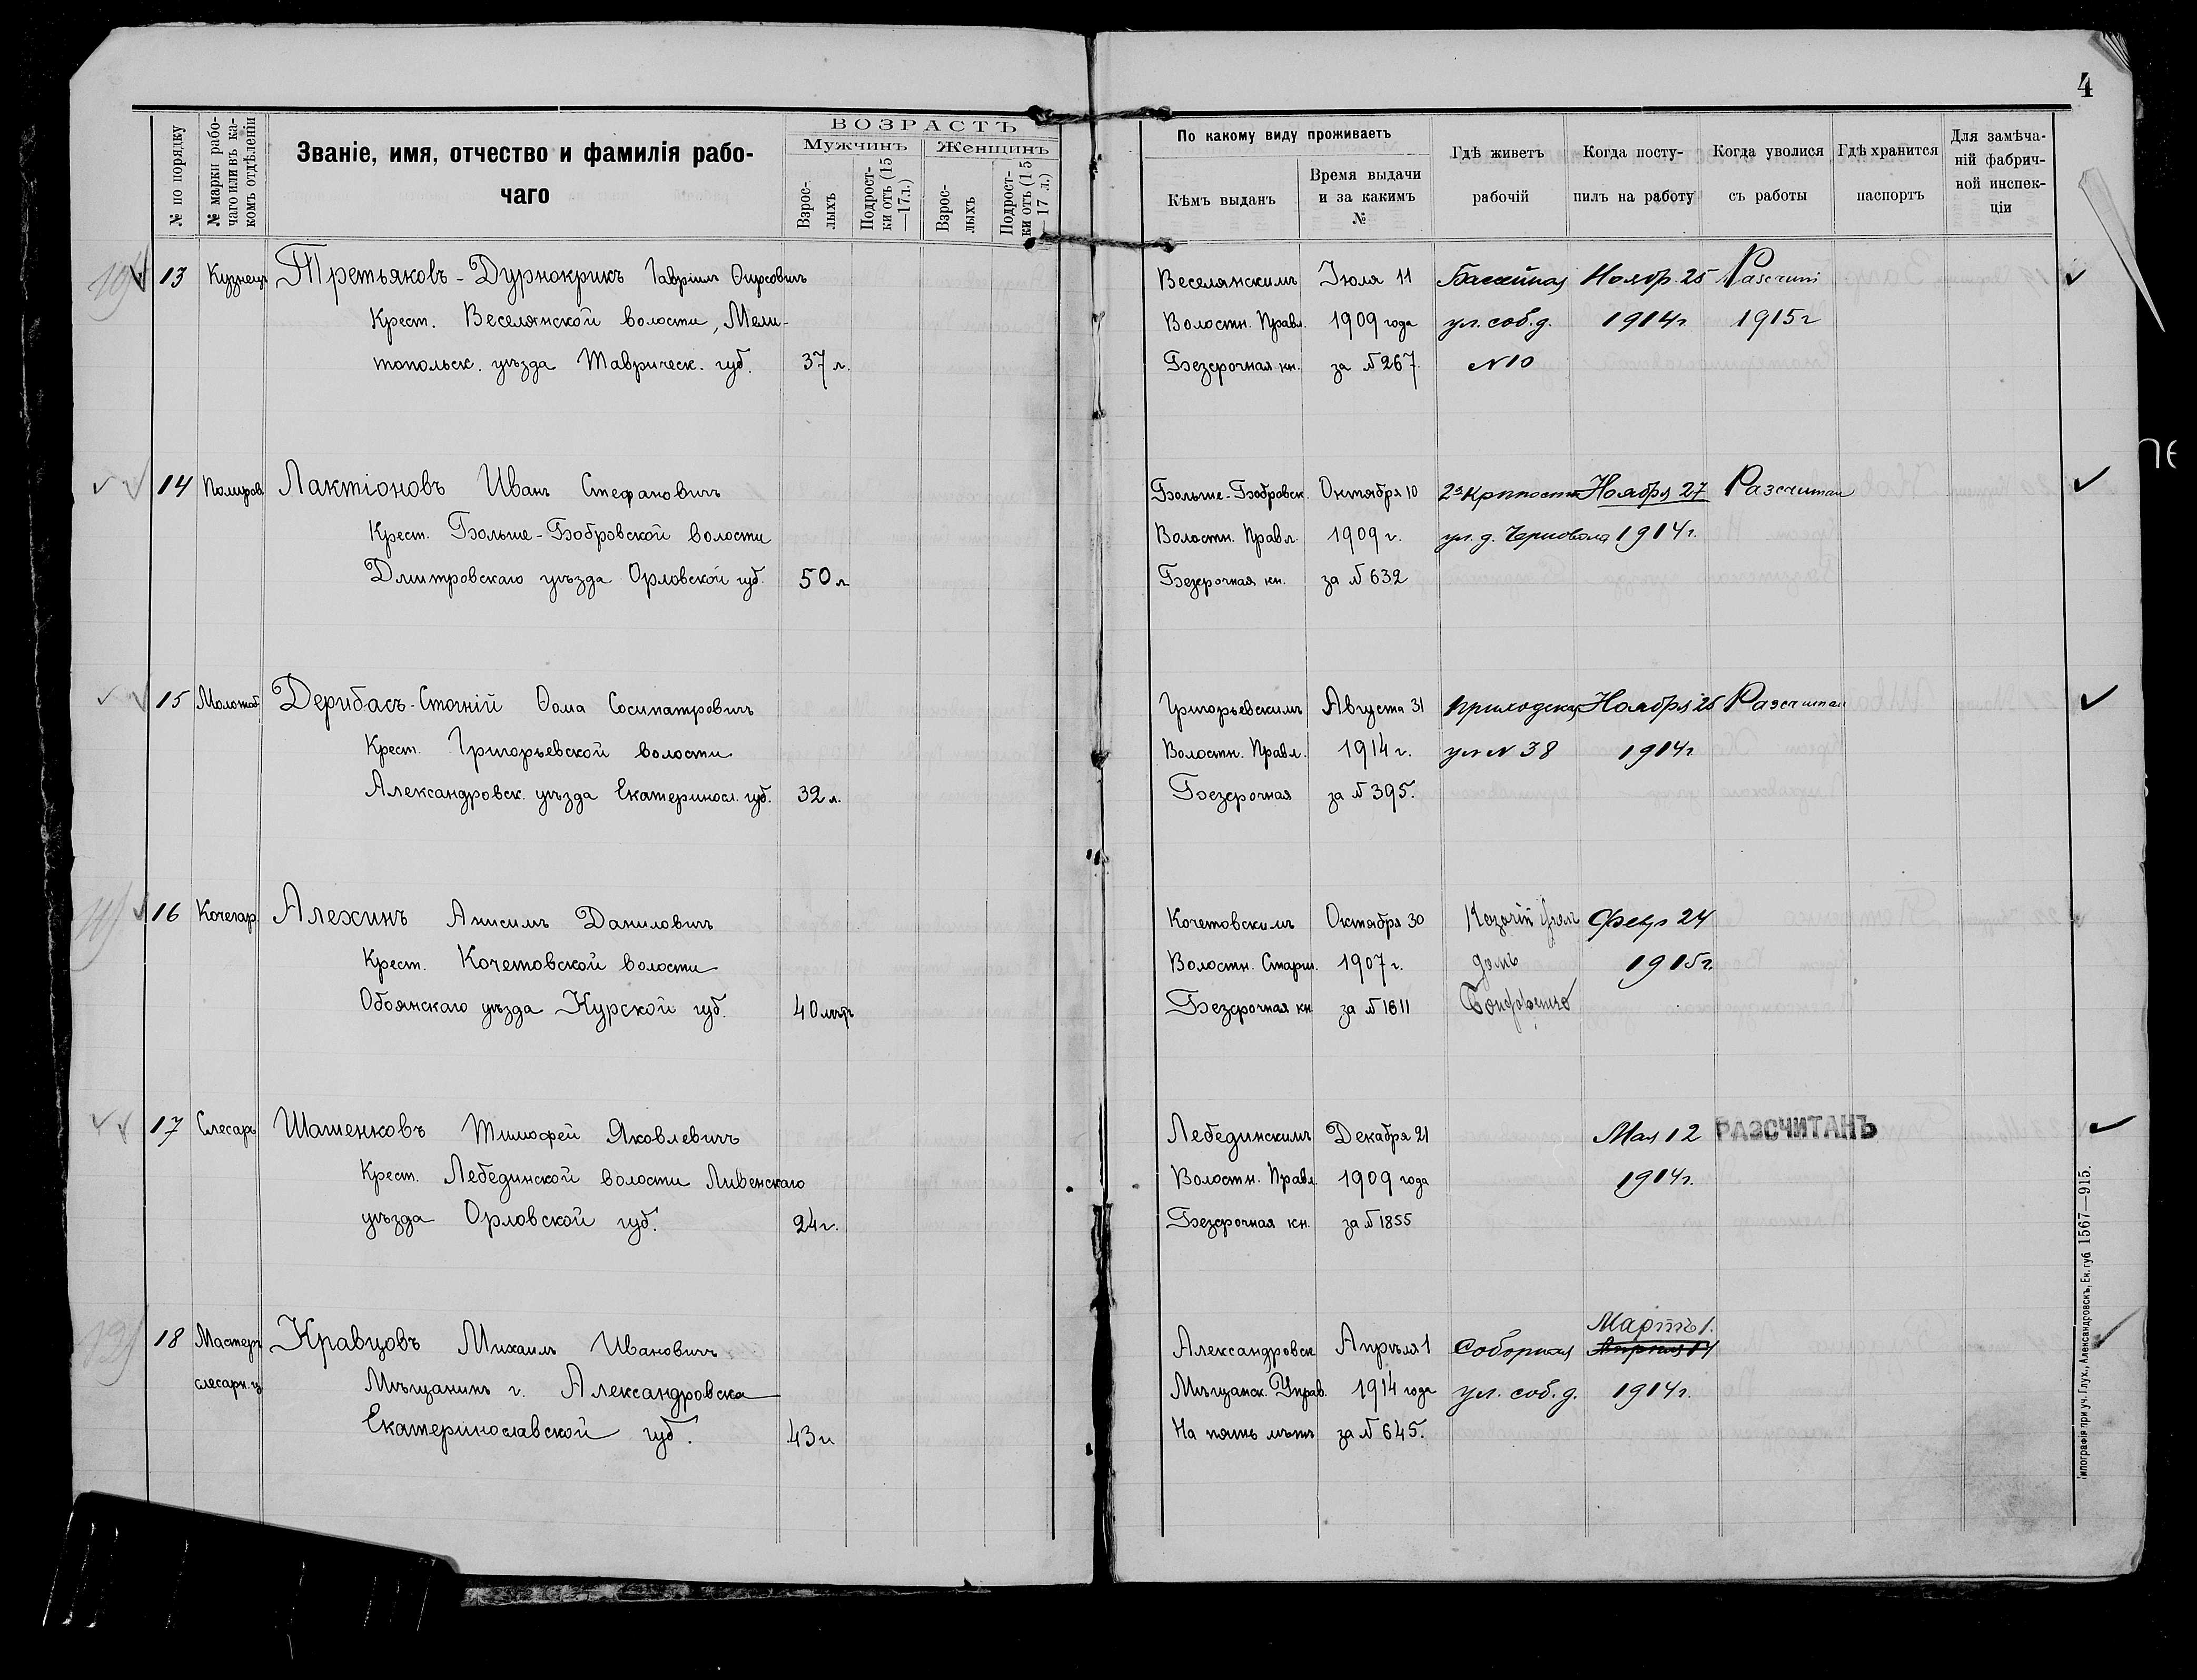 4
№ по порядку
№ марки рабо-
чаго или въ ка-
комъ отдѣленіи
Званіе, имя, отчество и фамилія рабо-
чаго
ВОЗРАСТЪ
Мужчинъ
Женщинъ
Взрос-
лыхъ
Подрост-
ки отъ (15
—17л.)
Взрос-
лыхъ
Подрост-
ки отъ (15
—17 л.)
По какому виду проживаетъ
Кѣмъ выданъ
Время выдачи
и за какимъ
№
Гдѣ живетъ
рабочій
Когда посту-
пилъ на работу
Когда уволися
съ работы
Гдѣ хранится
паспортъ
Для замѣча-
ній фабрич-
ной инспек-
ціи
13 Кузнецъ Третьяковъ-Дурнокрикъ Гавріилъ Фирсовичъ
Крест. Веселянской волости, Мели-
топольск. уѣзда Таврическ. губ. 37 л.
Веселянскимъ Іюля 11 Бассейная Ноябр. 25
Волостн. Правл. 1909 года ул. соб. д. 1914 г. 1915 г
Безсрочная кн. за №267. №10
14 Полиров. Лактіоновъ Иванъ Стефановичъ
Крест. Больше-Бобровской волости
Дмитровскаго уѣзда Орловской губ. 50 л
Больше-Бобровск. Октября 10 Ноября 27 Разсчитан
Волостн. Правл. 1909 г. ул. д. 1914 г.
Безсрочная кн. за №632
15 Молотоб. Дерибасъ-Стогній Ѳома Сосипатровичъ
Крест. Григорьевской волости
Александровск. уѣзда Екатериносл. губ. 32 л.
Григорьевскимъ Августа 31 Приходская Ноября 26 Разсчитан
Волостн. Правл. 1914 г. ул № 38 1914 г
Безсрочная за №395.
16 Кочегар. Алехинъ Анисимъ Даниловичъ
Крест. Кочетовской волости
Обоянскаго уѣзда Курской губ. 40 лѣтъ
Кочетовскимъ Октября 30 Февр 24
Волостн. Старш. 1907 г. домъ 1915 г.
Безсрочная кн за №1611
17 Слесарь Шатенковъ Тимофей Яковлевичъ
Крест. Лебединской волости Ливенскаго
уѣзда Орловской губ. 24 г.
Лебединскимъ Декабря 21 Мая 12 РАЗСЧИТАНЪ
Волостн. Правл. 1909 года 1914 г.
Безсрочная кн. за №1855
18 Мастеръ Кравцовъ Михаилъ Ивановичъ
слесарн. ц. Мѣщанинъ г. Александровска
Екатеринославской губ. 43 г
Мартъ 1.
Александровск Апрѣля 1 Соборная
Мѣщанск. Управ. 1914 года ул. соб. д. 1914 г.
На пять лѣтъ за №645.
Типографія при уч. Глух., Александровскъ, Ек. губ 1567—915.